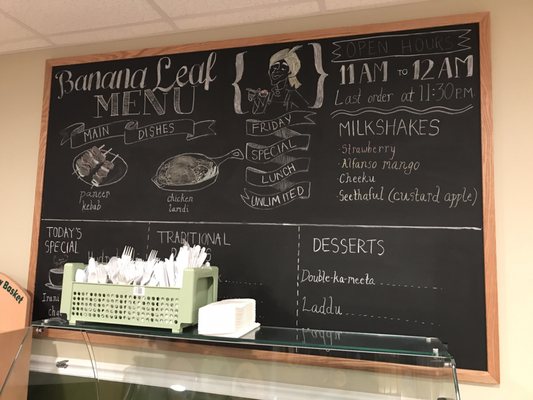 Banana Leaf
MENU
MAIN DISHES
paneer
kebab
chicken
FRIDAY
SPECIAL
LUNCH
UNLIMITED
OPEN HOURS
11AM TO 12AM
Last order at 11:30PM
MILKSHAKES
Strawberry
Alfanso mango
Cheeku
Seethaful (custard apple)
TODAY'S
SPECIAL
TRADITIONAL
DESSERTS
Double-ka-meeta
Laddu
Basket